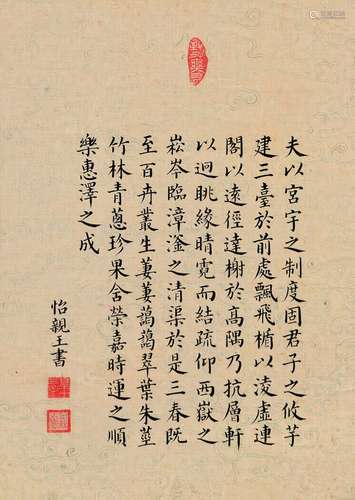 夫以宮宇之制度固君子之攸芋
建三臺於前處飄飛楯以淩虛連
閣以遠徑達榭於高隅乃抗層軒
以迥眺緣晴霓而結疏仰西嶽之
崧岑臨漳滏之清渠於是三春既
至百卉叢生萋萋藹藹翠葉朱莖
竹林青蔥珍果含榮嘉時運之順
樂惠澤之成
怡親王書